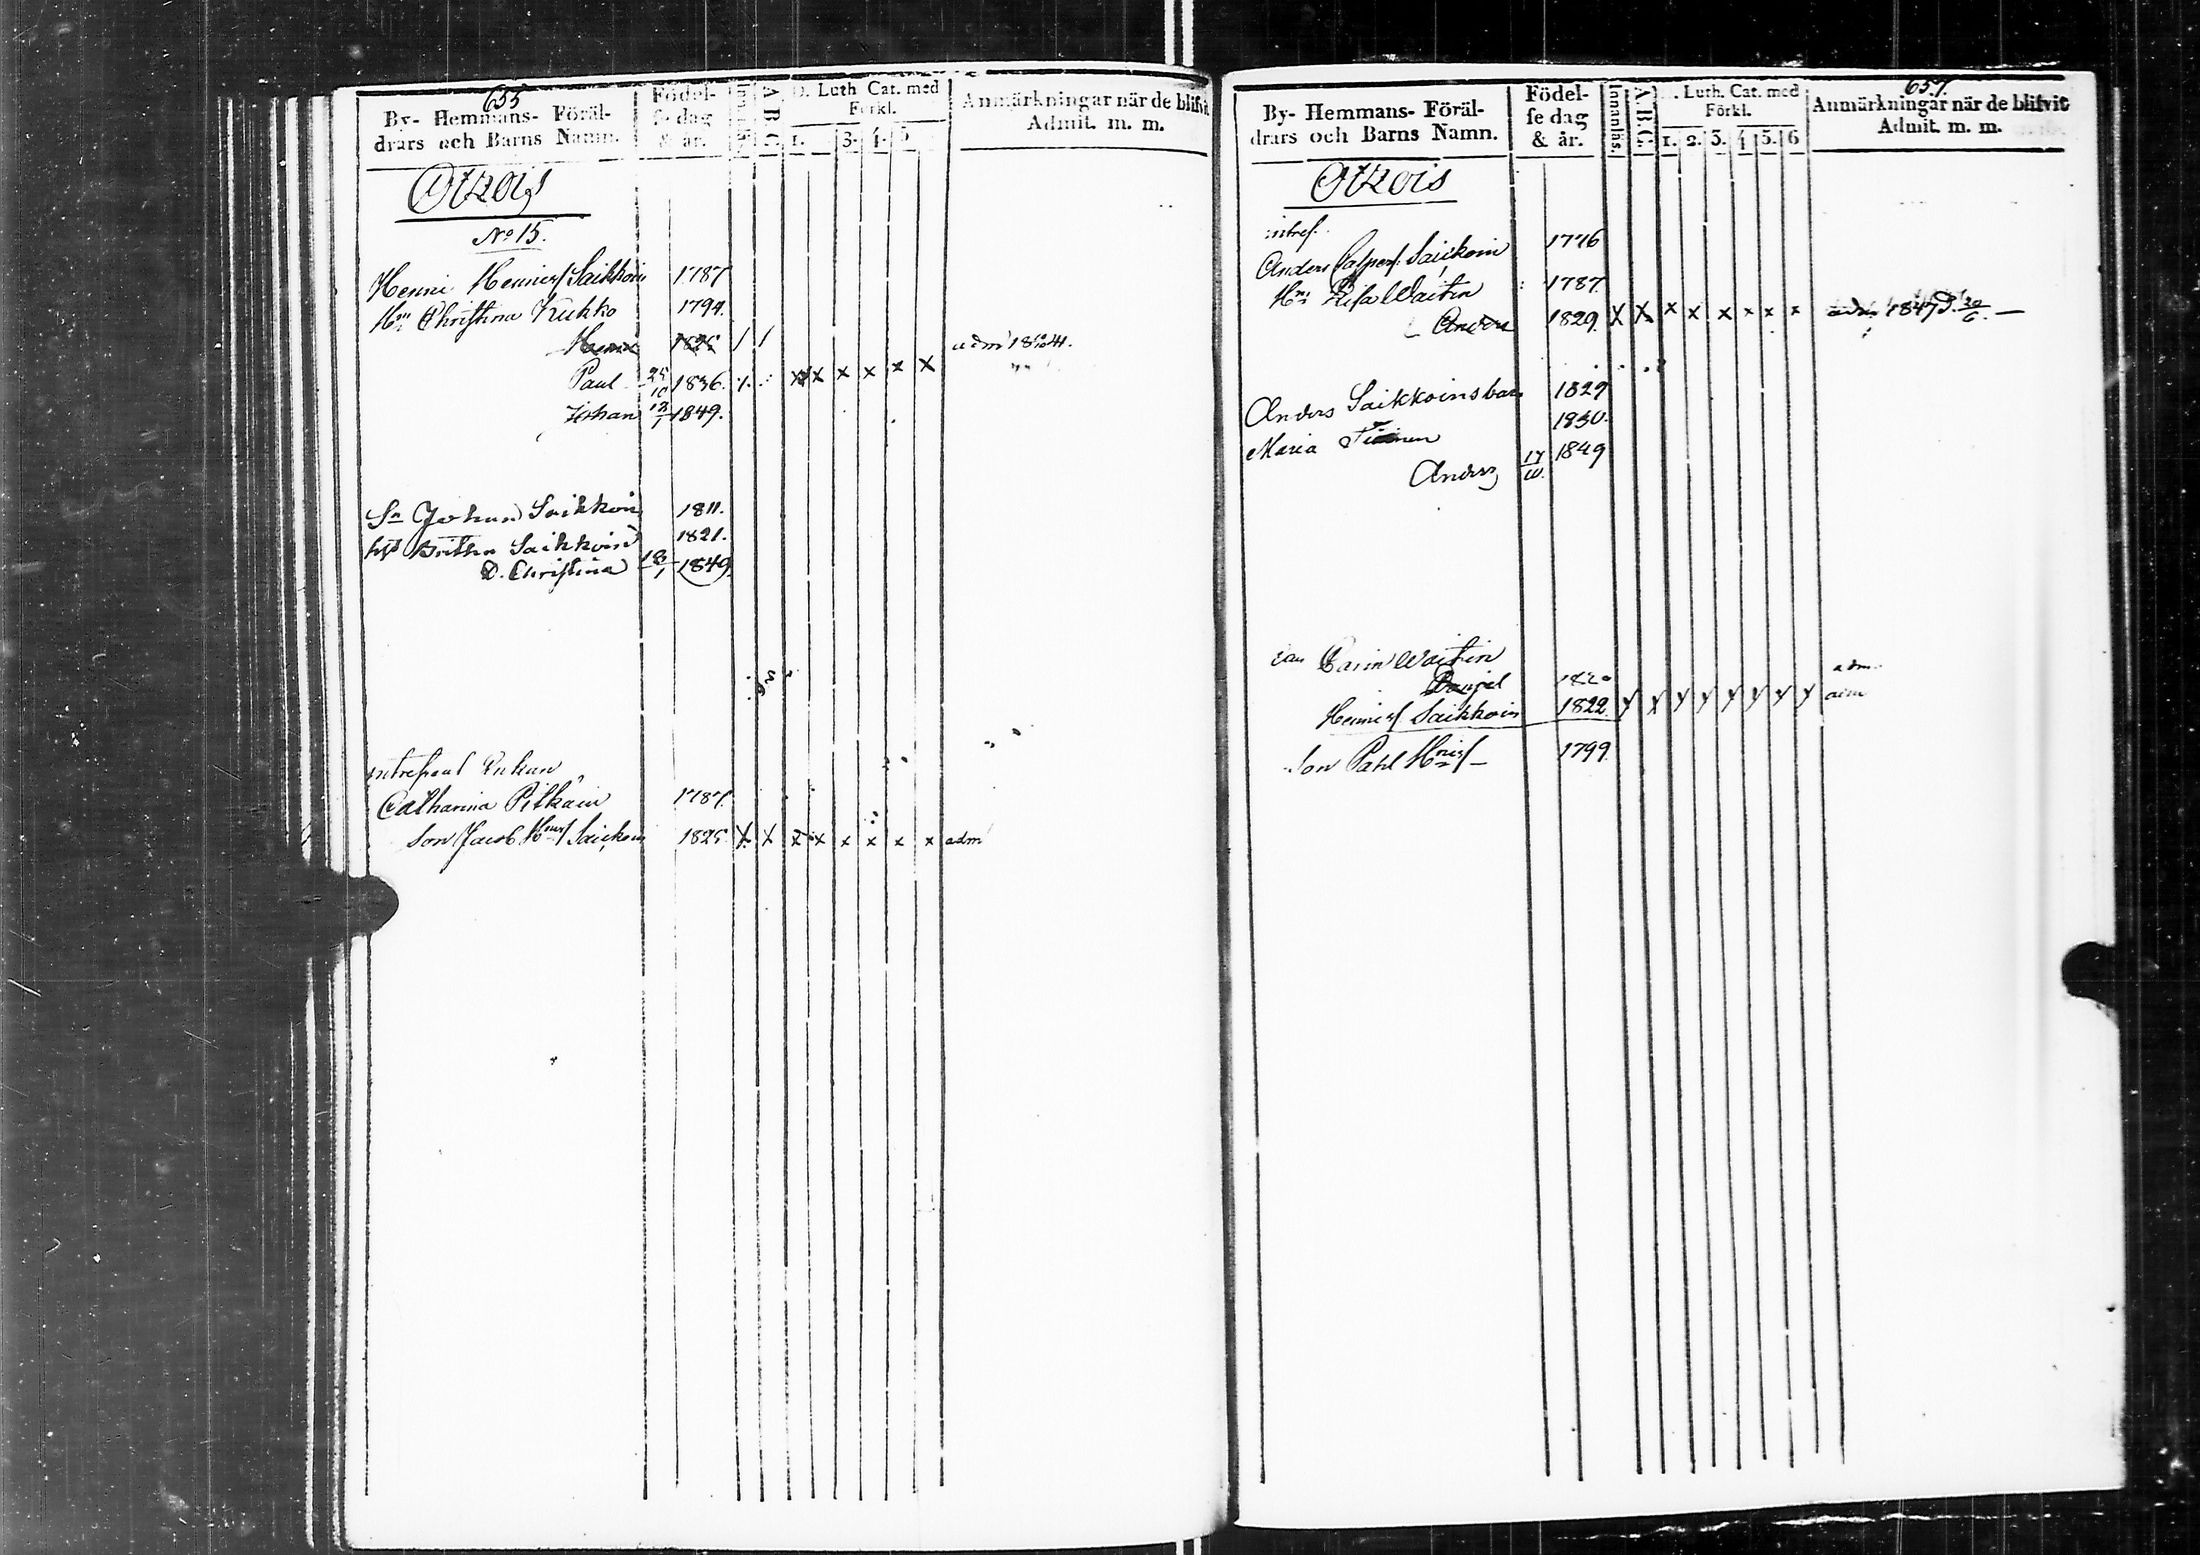 655
By- Hemmans- Föräl-
drars och Barns Namn.
Födel-
se dag
& år.
A. B. C.
D. Luth Cat. med
Förkl.
1. 3. 4. 5
Anmärkningar när de blifvit
Admit. m. m.
Otrois
No 15.
Henric Henrics Saikkoin 1787
Christina Kukko 1794.
Henric 1825 / /
adm 1841.
Paul 1836. x x x x x x
Johan 1849.
Sn Johan Saikkoin 1811.
Brittha Saikkoin 1821.
D. Christina 18/1 1849.
Enkan
Catharina Pitkäin 1787.
Son Jacob Saickoin 1825 x x x x x x x x adm
657.
By- Hemmans- Föräl-
drars och Barns Namn.
Födel-
se dag
& år.
Innanläs.
A. B. C.
Luth. Cat. med
Förkl.
1. 2. 3. 4 5. 6
Anmärkningar när de blifvit
Admit. m. m.
Otrois
Anders Caspers Saickoin 1776
Lisa Waitin 1787.
Anders 1829. x x x x x x x x adm 1847
Anders Saikkoins 1829
Maria 1830.
Anders 1849
Carin Waitin
adm
Henrics Saikkoin 1822 x x x x x x x x adm
Son Pahl 1799